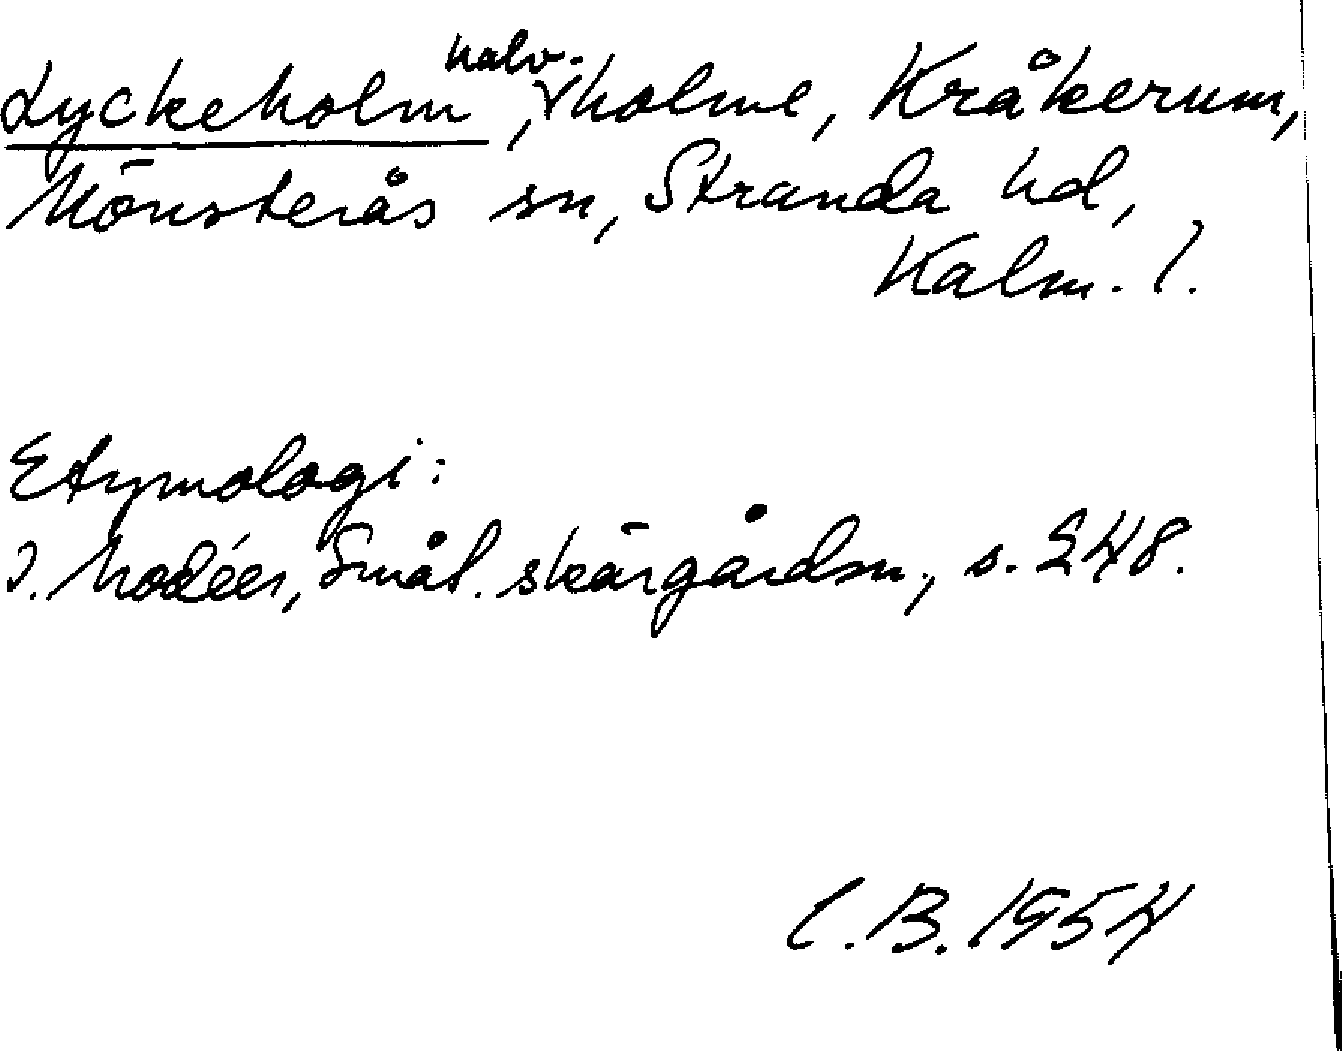 Lyckeholm, halv-holme, Kråkerum,
Mönsterås sn, Stranda hd,
Kalm. l.
Etymologi:
I. Modéer, Smål. skärgårdsn., s. 248.
C.B. 1954